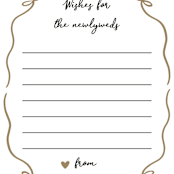 Wishes for
the newlyweds
from